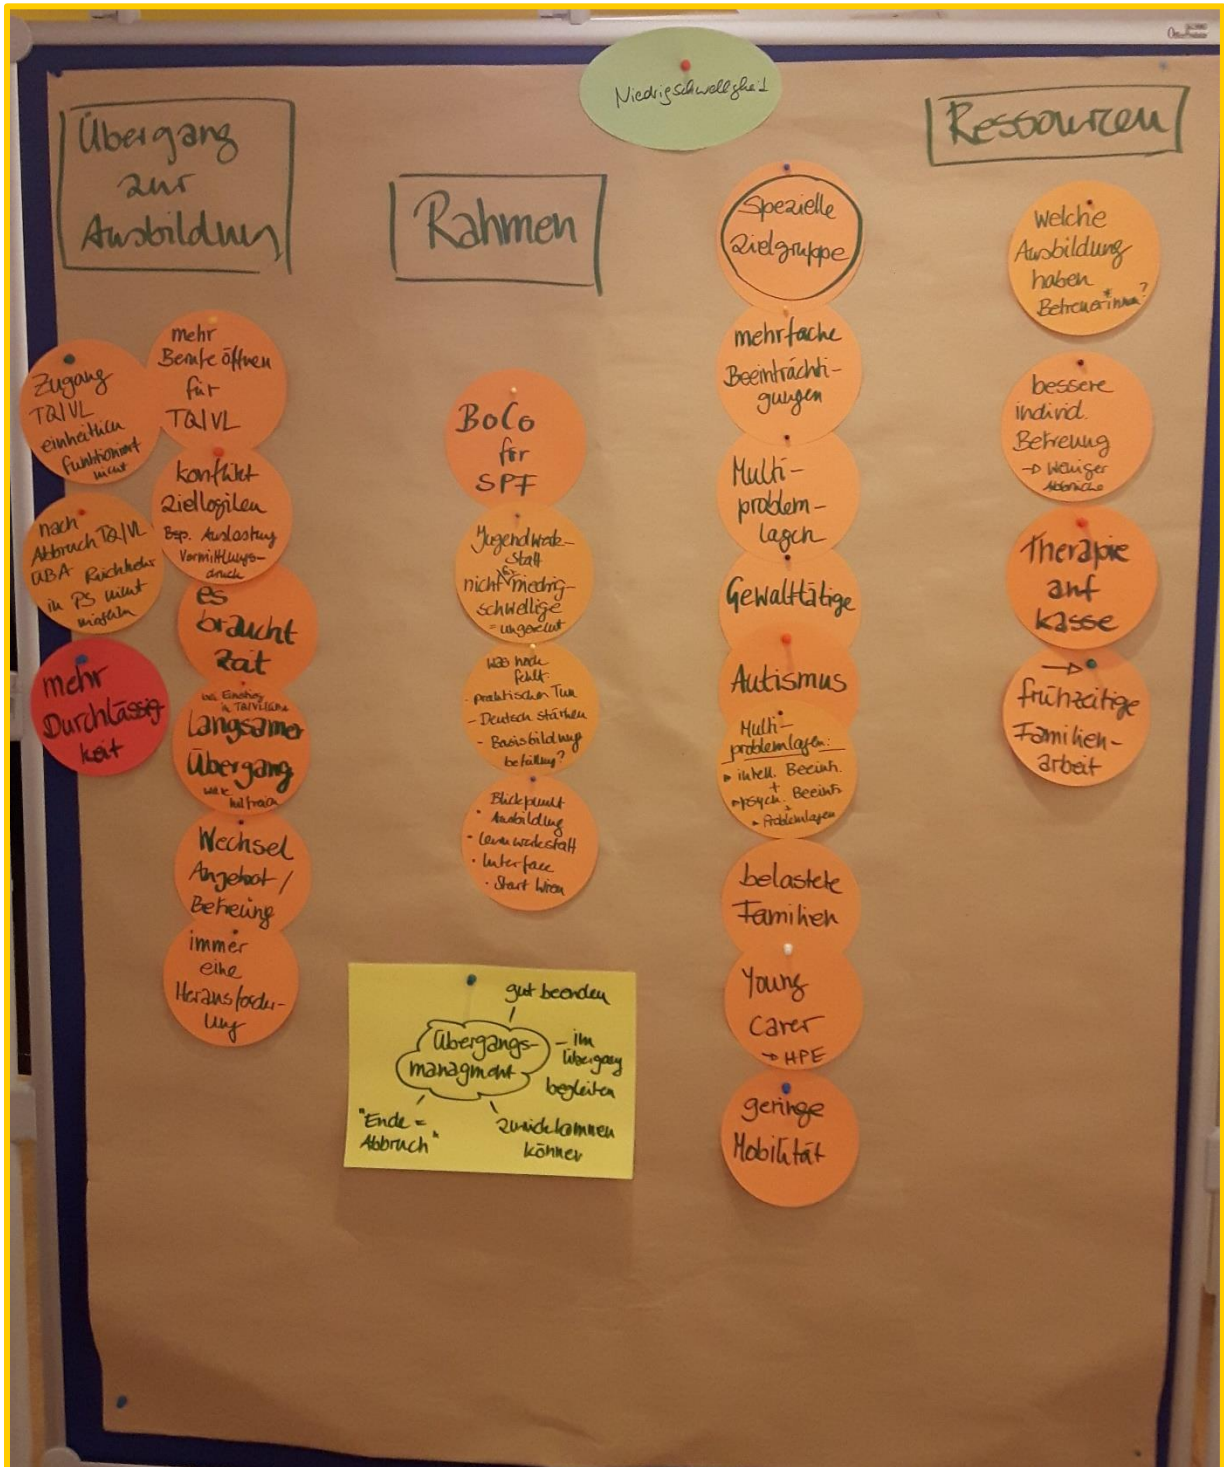 Niedrigschwelligkeit
Übergang
zur
Ausbildung
Zugang
TQ/VL
einheitlich
funktioniert
nicht
nach
Abbruch TQ/VL
ÜBA Rückkehr
in PS nicht
möglich
mehr
Durchlässig
keit
mehr
Berufe öffnen
für
TQ/VL
Konflikt
Ziellogiken
Bsp. Auslastung
Vermittlungs-
druck
es
braucht
Zeit
bei Einstieg
in TQ/VL/ÜBA
Langsamer
Übergang
wäre
hilfreich
Wechsel
Angebot/
Betreuung
immer
eine
Herausforder-
ung
Rahmen
BoCo
für
SPF
Jugendwerk-
statt
nicht für niedrig-
schwellige
= ungeeignet
was noch
fehlt:
- praktisches Tun
- Deutsch stärken
- Basisbildung
Blickpunkt
• Ausbildung
• Lernwerkstatt
• Interface
• Start Wien
gut beenden
Übergangs-
managment
- im
Übergang
begleiten
"Ende =
Abbruch"
zurückkommen
können
Spezielle
Zielgruppe
mehrfache
Beeinträchti-
gungen
Multi-
problem-
lagen
Gewalttätige
Autismus
Multi-
problemlagen:
intell. Beeint.
+
psych. Beeint.
+
Problemlagen
belastete
Familien
Young
Carer
→ HPE
geringe
Mobilität
Ressourcen
Welche
Ausbildung
haben
Betreuer*innen?
bessere
individ.
Betreuung
→ Weniger
Abbrüche
Therapie
auf
Kasse
→
frühzeitige
Familien-
arbeit